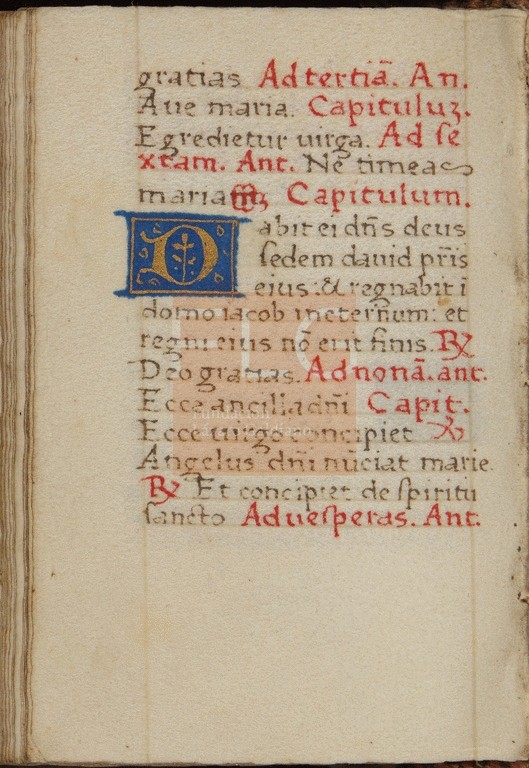 gratias Ad tertiã. An.
Aue maria. Capituluȝ.
Egredietur uirga. Ad se
xtam. Ant. Ne timeas
maria Capitulum.
Dabit ei dñs deus
sedem dauid pr̃is
eius: & regnabit ĩ
domo iacob in eternum: et
regni eius nõ erit finis. ℟
Deo gratias. Ad nonã. ant.
Ecce ancilla dñi Capit.
Ecce uirgo concipiet ℣
Angelus dñi nũciat marie.
℟ Et concipiet de spiritu
sancto Ad uesperas. Ant.